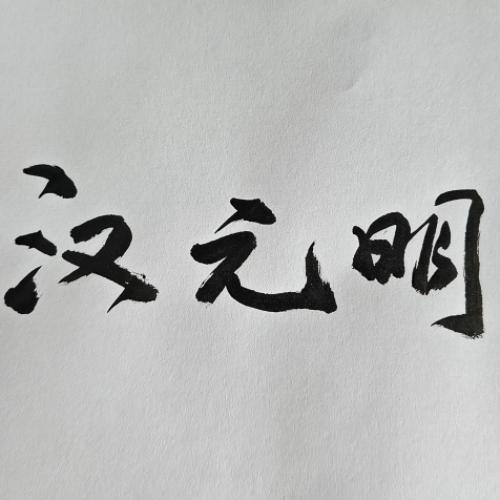 汉元明